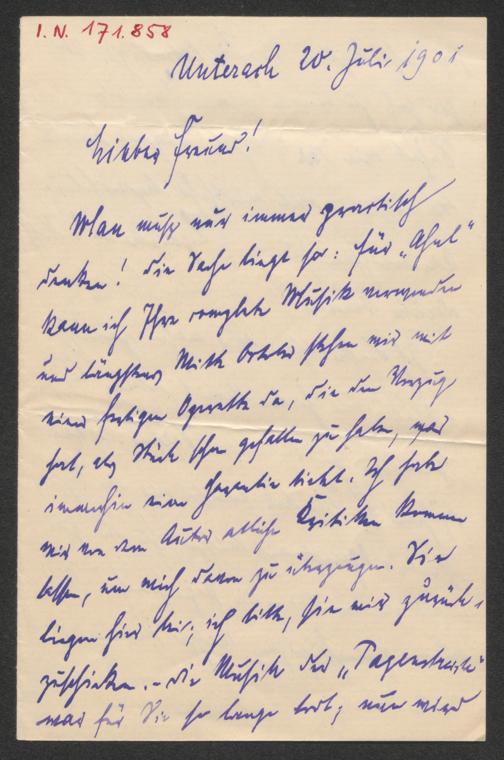 I.N. 171.858
Unterach 20. Juli 1901
Lieber Freund!
Man muß nur immer practisch
denken! Die Sache liegt so: für „Ahnl“
kann ich Ihre complete Musik verwenden
und längstens Mitte October stehen wir mit
einer fertigen Operette da, die den Vorzug
hat, als Stück schon gefallen zu haben, was
immerhin eine Garantie bietet. Ich habe
mir von dem Autor etliche Kritiken kommen
lassen, um mich davon zu überzeugen. Sie
liegen hier bei; ich bitte, sie mir zurück-
zuschicken. – Die Musik der
war für Sie so lange todt; nun wird